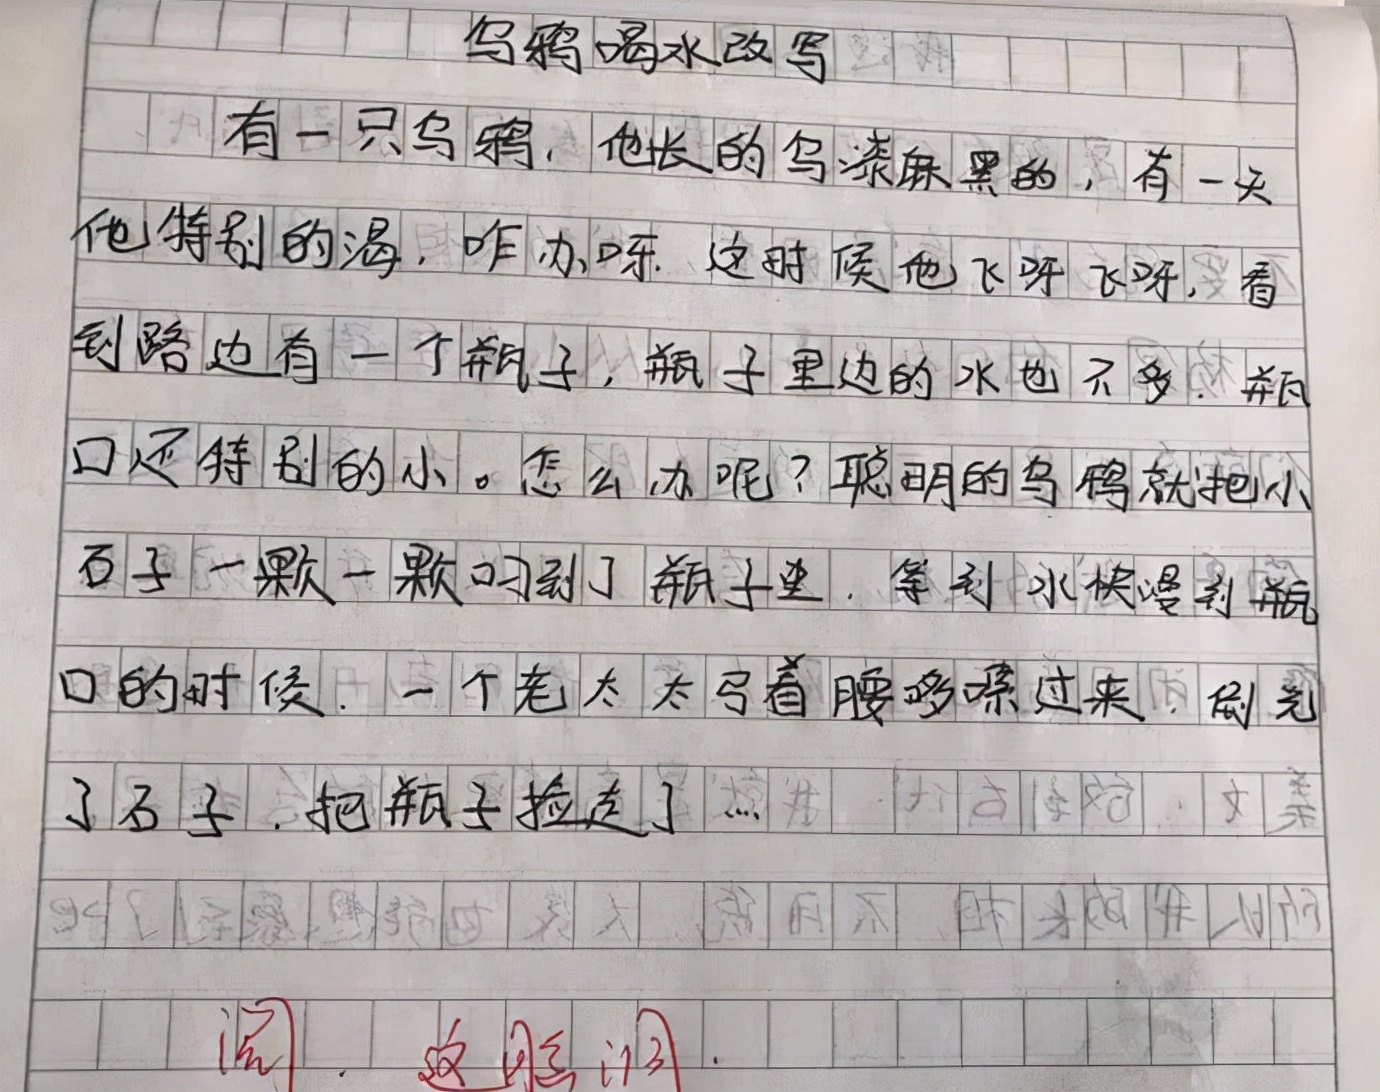 乌鸦喝水改写
有一只乌鸦，他长的乌漆麻黑的，有一天
他特别的渴，咋办呀．这时候他飞呀飞呀，看
到路边有一个瓶子，瓶子里边的水也不多．瓶
口还特别的小。怎么办呢？聪明的乌鸦就把小
石子一颗一颗叼到了瓶子里．等到水快漫到瓶
口的时候．一个老太太弓着腰哆嗦过来．倒光
了石子．把瓶子捡走了…
阅．